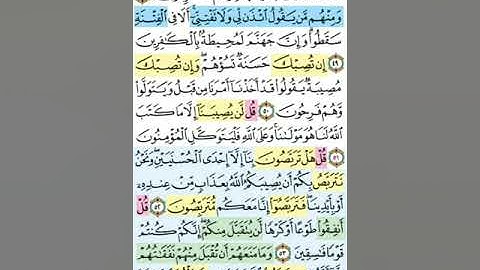 وَمِنْهُم مَّن يَقُولُ ائْذَن لِّي وَلَا تَفْتِنِّي ۚ أَلَا فِي الْفِتْنَةِ
سَقَطُوا ۗ وَإِنَّ جَهَنَّمَ لَمُحِيطَةٌ بِالْكَافِرِينَ
٤٩ إِن تُصِبْكَ حَسَنَةٌ تَسُؤْهُمْ ۖ وَإِن تُصِبْكَ
مُصِيبَةٌ يَقُولُوا قَدْ أَخَذْنَا أَمْرَنَا مِن قَبْلُ وَيَتَوَلَّوا
وَّهُمْ فَرِحُونَ ٥٠ قُل لَّن يُصِيبَنَا إِلَّا مَا كَتَبَ
اللَّهُ لَنَا هُوَ مَوْلَانَا ۚ وَعَلَى اللَّهِ فَلْيَتَوَكَّلِ الْمُؤْمِنُونَ
٥١ قُلْ هَلْ تَرَبَّصُونَ بِنَا إِلَّا إِحْدَى الْحُسْنَيَيْنِ ۖ وَنَحْنُ
نَتَرَبَّصُ بِكُمْ أَن يُصِيبَكُمُ اللَّهُ بِعَذَابٍ مِّنْ عِندِهِ
أَوْ بِأَيْدِينَا ۖ فَتَرَبَّصُوا إِنَّا مَعَكُم مُّتَرَبِّصُونَ ٥٢ قُلْ
أَنفِقُوا طَوْعًا أَوْ كَرْهًا لَّن يُتَقَبَّلَ مِنكُمْ ۖ إِنَّكُمْ كُنتُمْ
قَوْمًا فَاسِقِينَ ٥٣ وَمَا مَنَعَهُمْ أَن تُقْبَلَ مِنْهُمْ نَفَقَاتُهُمْ